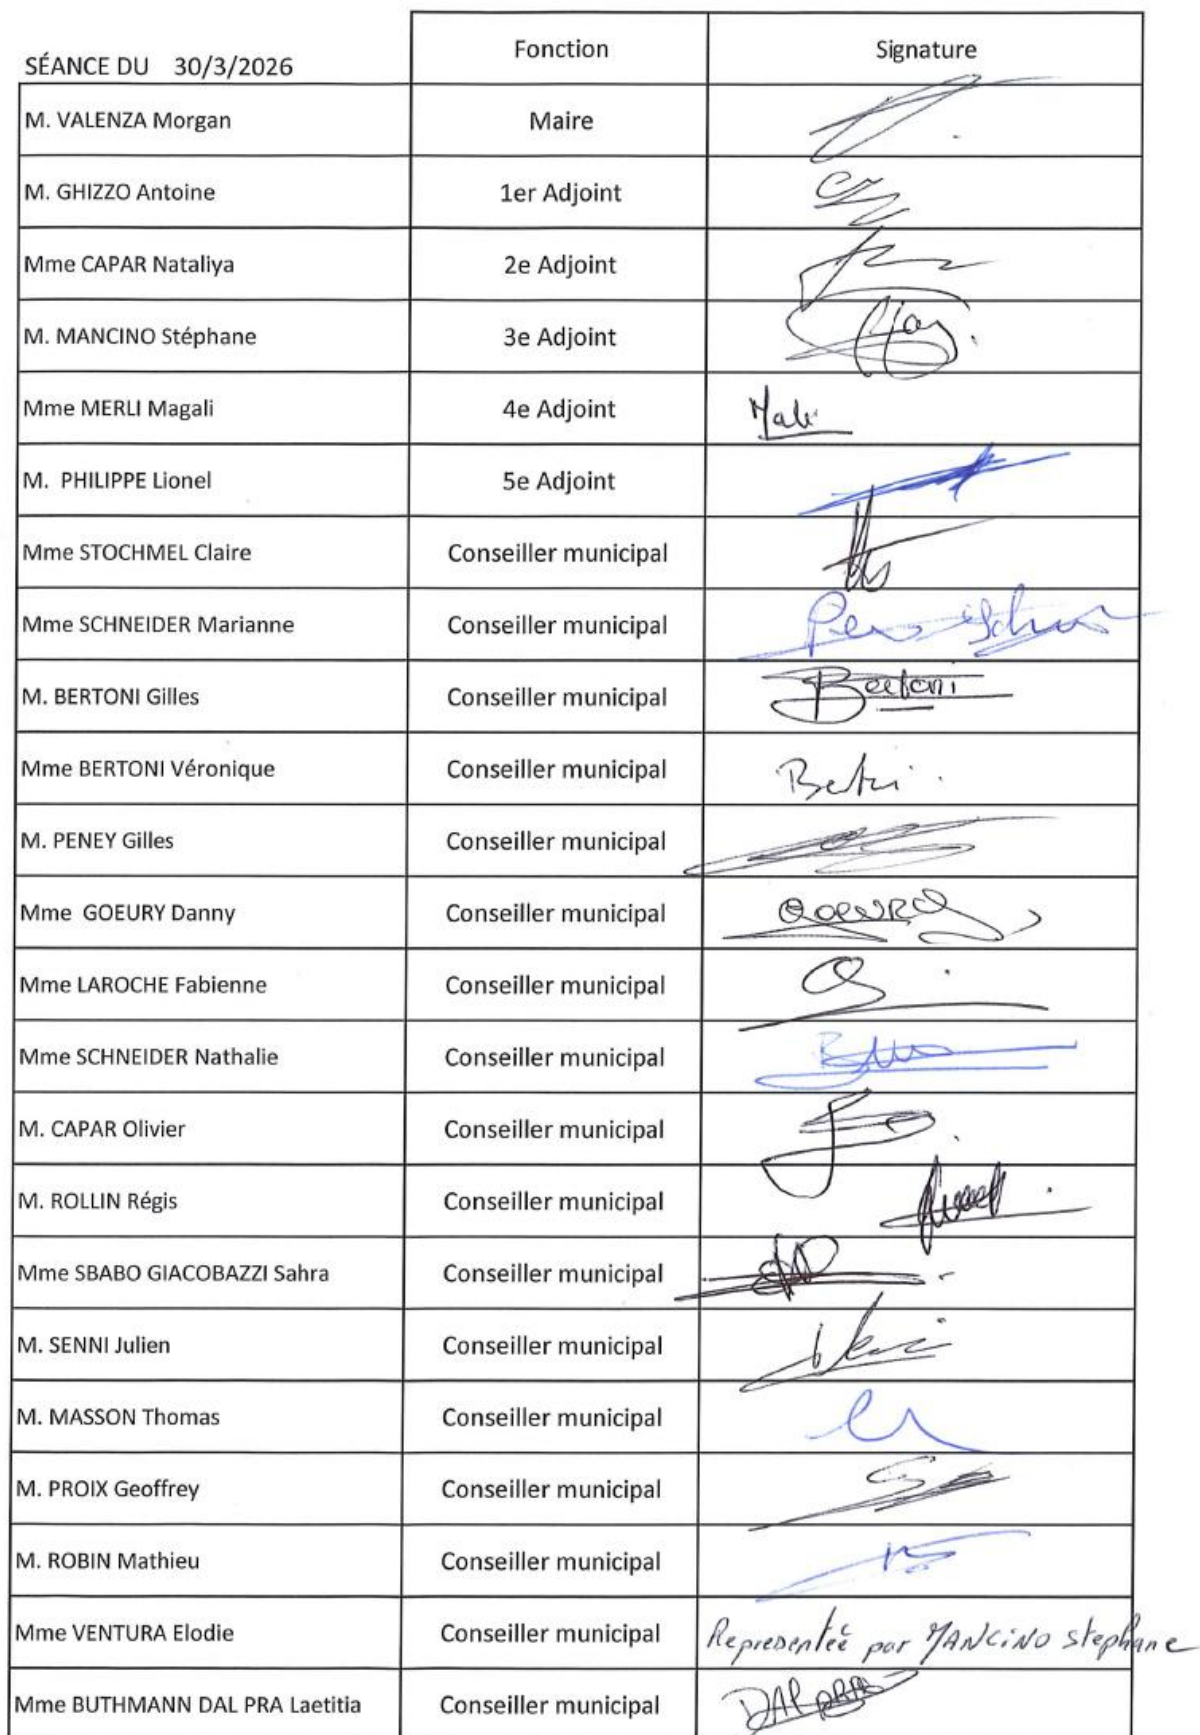 Fonction Signature
SÉANCE DU 30/3/2026
M. VALENZA Morgan Maire
M. GHIZZO Antoine 1er Adjoint
Mme CAPAR Nataliya 2e Adjoint
M. MANCINO Stéphane 3e Adjoint
Mme MERLI Magali 4e Adjoint
M. PHILIPPE Lionel 5e Adjoint
Mme STOCHMEL Claire Conseiller municipal
Mme SCHNEIDER Marianne Conseiller municipal
M. BERTONI Gilles Conseiller municipal Bertoni
Mme BERTONI Véronique Conseiller municipal
M. PENEY Gilles Conseiller municipal
Mme GOEURY Danny Conseiller municipal
Mme LAROCHE Fabienne Conseiller municipal
Mme SCHNEIDER Nathalie Conseiller municipal
M. CAPAR Olivier Conseiller municipal
M. ROLLIN Régis Conseiller municipal
Mme SBABO GIACOBAZZI Sahra Conseiller municipal
M. SENNI Julien Conseiller municipal
M. MASSON Thomas Conseiller municipal
M. PROIX Geoffrey Conseiller municipal
M. ROBIN Mathieu Conseiller municipal
Mme VENTURA Elodie Conseiller municipal Representée par MANCINO stephane
Mme BUTHMANN DAL PRA Laetitia Conseiller municipal DAL PRA